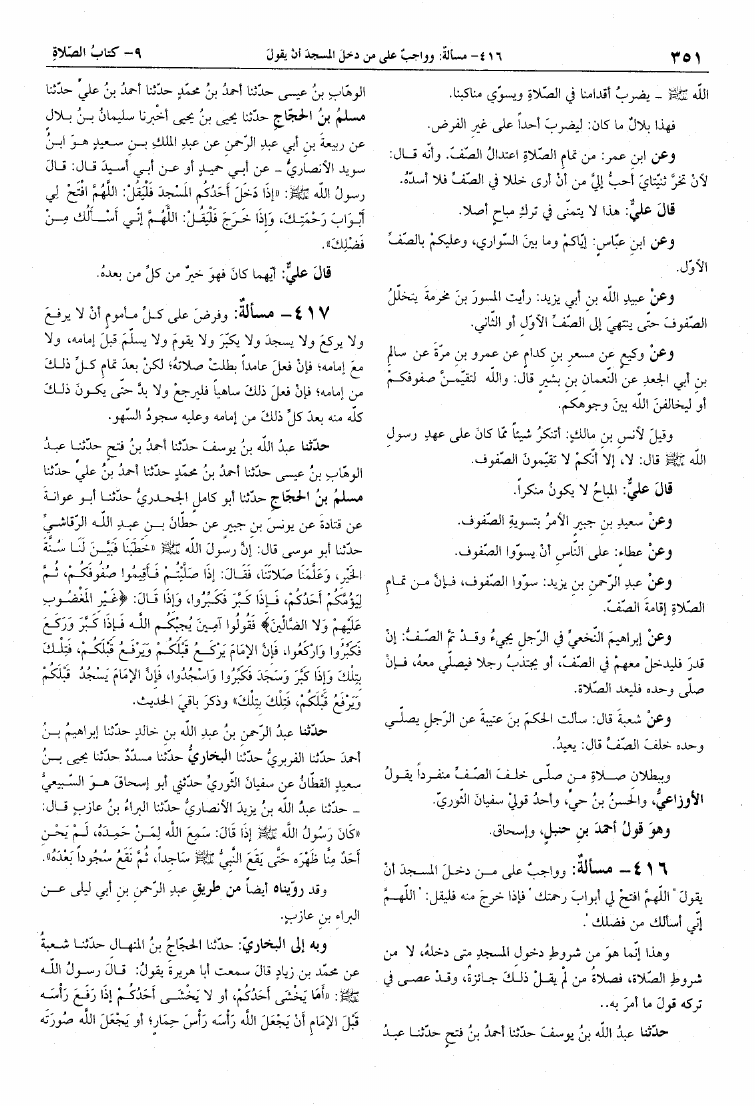 ٣٥١
٤١٦- مسألة: وواجبٌ على من دخلَ المسجدَ أنْ يقولَ
٩- كتابُ الصّلاةِ
الله ﷺ - يضربُ أقدامنا في الصّلاةِ ويسوّي مناكبنا.
فهذا بلالٌ ما كان: ليضربَ أحداً على غيرِ الفرض.
وعن ابن عمر: من تمامِ الصّلاةِ اعتدالُ الصّفّ. وأنه قال:
لأنْ تخرَّ ثنيّتايَ أحبُّ إليَّ من أنْ أرى خللا في الصّفِّ فلا أسدّهُ.
قال عليٌّ: هذا لا يتمنّى في تركِ مباحٍ أصلا.
وعن ابنِ عبّاسٍ: إيّاكمْ وما بينَ السّواري، وعليكمْ بالصّفِّ
الأوّلِ.
وعنْ عبيدِ الله بنِ أبي يزيد: رأيت المسورَ بنَ مخرمةَ يتخلّلُ
الصّفوفَ حتّى ينتهيَ إلى الصّفِّ الأوّلِ أو الثّاني.
وعنْ وكيعٍ عن مسعرِ بنِ كدامٍ عن عمرو بنِ مرّةَ عن سالمِ
بنِ أبي الجعدِ عن النّعمانِ بنِ بشيرٍ قال: والله لتقيّمنَّ صفوفكمْ
أو ليخالفنَّ الله بينَ وجوهكم.
وقيلَ لأنسِ بنِ مالكٍ: أتنكرُ شيئاً ممّا كانَ على عهدِ رسولِ
الله ﷺ قال: لا، إلا أنّكمْ لا تقيّمونَ الصّفوف.
قال عليٌّ: المباحُ لا يكونُ منكراً.
وعنْ سعيدِ بنِ جبيرٍ الأمرُ بتسويةِ الصّفوف.
وعنْ عطاءٍ: على النّاسِ أنْ يسوّوا الصّفوف.
وعنْ عبدِ الرّحمنِ بنِ يزيد: سوّوا الصّفوف، فإنَّ من تمامِ
الصّلاةِ إقامةَ الصّفّ.
وعنْ إبراهيمَ النّخعيِّ في الرّجلِ يجيءُ وقدْ تمَّ الصّفُّ: إنْ
قدرَ فليدخلْ معهمْ في الصّفّ، أو يجتذبُ رجلا فيصلّي معهُ، فإنْ
صلّى وحده فليعد الصّلاة.
وعنْ شعبةَ قال: سألت الحكمَ بنَ عتيبةَ عن الرّجلِ يصلّي
وحده خلفَ الصّفِّ قال: يعيدُ.
وببطلانِ صلاةِ من صلّى خلفَ الصّفِّ منفرداً يقولُ
الأوزاعيُّ، والحسنُ بنُ حيٍّ، وأحدُ قوليْ سفيانَ الثّوريّ.
وهوَ قولُ أحمدَ بنِ حنبلٍ، وإسحاق.
٤١٦- مسألةٌ: وواجبٌ على من دخلَ المسجدَ أنْ
يقولَ "اللهمَّ افتحْ لي أبوابَ رحمتك" فإذا خرجَ منه فليقل: "اللهمَّ
إنّي أسألك من فضلك".
وهذا إنّما هوَ من شروطِ دخولِ المسجدِ متى دخلهُ، لا من
شروطِ الصّلاة، فصلاةُ من لمْ يقلْ ذلكَ جائزةٌ، وقدْ عصى في
تركه قولَ ما أمرَ به..
حدّثنا عبدُ الله بنُ يوسفَ حدّثنا أحمدُ بنُ فتحٍ حدّثنا عبدُ
الوهابِ بنُ عيسى حدّثنا أحمدُ بنُ محمّدٍ حدّثنا أحمدُ بنُ عليٍّ حدّثنا
مسلمُ بنُ الحجّاجِ حدّثنا يحيى بنُ يحيى أخبرنا سليمانُ بنُ بلالٍ
عن ربيعةَ بنِ أبي عبدِ الرّحمنِ عن عبدِ الملكِ بنِ سعيدٍ هوَ ابنُ
سويد الأنصاريُّ - عن أبي حميدٍ أو عن أبي أسيدَ قال: قالَ
رسولُ الله ﷺ: «إذَا دَخَلَ أَحَدُكُم المَسْجِدَ فَلْيَقُلْ: اللَّهُمَّ افْتَحْ لِي
أَبْوَابَ رَحْمَتِكَ، وَإِذَا خَرَجَ فَلْيَقُلْ: اللَّهُمَّ إنِّي أَسْأَلُكَ مِنْ
فَضْلِكَ».
قال عليٌّ: أيّهما كانَ فهوَ خيرٌ من كلِّ من بعدهُ.
٤١٧- مسألةٌ: وفرضٌ على كلِّ مأمومٍ أنْ لا يرفعَ
ولا يركعَ ولا يسجدَ ولا يكبّرَ ولا يقومَ ولا يسلّمَ قبلَ إمامه، ولا
معَ إمامه؛ فإنْ فعلَ عامداً بطلتْ صلاتهُ؛ لكنْ بعدَ تمامِ كلِّ ذلكَ
من إمامه؛ فإنْ فعلَ ذلكَ ساهياً فليرجعْ ولا بدَّ حتّى يكونَ ذلكَ
كلّه منه بعدَ كلِّ ذلكَ من إمامه وعليه سجودُ السّهو.
حدّثنا عبدُ الله بنُ يوسفَ حدّثنا أحمدُ بنُ فتحٍ حدّثنا عبدُ
الوهّابِ بنُ عيسى حدّثنا أحمدُ بنُ محمّدٍ حدّثنا أحمدُ بنُ عليٍّ حدّثنا
مسلمُ بنُ الحجّاجِ حدّثنا أبو كاملٍ الجحدريُّ حدّثنا أبو عوانةَ
عن قتادةَ عن يونسَ بنِ جبيرٍ عن حطّانَ بنِ عبدِ الله الرّقاشيِّ
حدّثنا أبو موسى قال: إنَّ رسولَ الله ﷺ «خَطَبَنَا فَبَيَّنَ لَنَا سُنَّةَ
الخَيْرِ، وَعَلَّمَنَا صَلاَتَنَا، فَقَالَ: إذَا صَلَّيْتُمْ فَأَقِيمُوا صُفُوفَكُمْ، ثُمَّ
لِيَؤُمَّكُمْ أَحَدُكُمْ، فَإِذَا كَبَّرَ فَكَبِّرُوا، وَإِذَا قَالَ: ﴿غَيْرِ المَغْضُوبِ
عَلَيْهِمْ وَلا الضَّالِّينَ﴾ فَقُولُوا آمِينَ يُجِبْكُم اللَّه فَإِذَا كَبَّرَ وَرَكَعَ
فَكَبِّرُوا وَارْكَعُوا، فَإِنَّ الإِمَامَ يَرْكَعُ قَبْلَكُمْ وَيَرْفَعُ قَبْلَكُمْ، فَتِلْكَ
بِتِلْكَ وَإِذَا كَبَّرَ وَسَجَدَ فَكَبِّرُوا وَاسْجُدُوا، فَإِنَّ الإِمَامَ يَسْجُدُ قَبْلَكُمْ
وَيَرْفَعُ قَبْلَكُمْ، فَتِلْكَ بِتِلْكَ» وذكرَ باقيَ الحديث.
حدّثنا عبدُ الرّحمنِ بنُ عبدِ الله بنِ خالدٍ حدّثنا إبراهيمُ بنُ
أحمدَ حدّثنا الفربريُّ حدّثنا البخاريُّ حدّثنا مسدّدٌ حدّثنا يحيى بنُ
سعيدٍ القطّانُ عن سفيانَ الثّوريِّ حدّثني أبو إسحاقَ هوَ السّبيعيُّ
- حدّثنا عبدُ الله بنُ يزيدَ الأنصاريُّ حدّثنا البراءُ بنُ عازبٍ قال:
«كَانَ رَسُولُ اللَّه ﷺ إذَا قَالَ: سَمِعَ اللَّه لِمَنْ حَمِدَهُ، لَمْ يَحْنِ
أَحَدٌ مِنَّا ظَهْرَهُ حَتَّى يَقَعَ النَّبِيُّ ﷺ سَاجِداً، ثُمَّ نَقَعُ سُجُوداً بَعْدَهُ».
وقد روّيناه أيضاً من طريقِ عبدِ الرّحمنِ بنِ أبي ليلى عن
البراءِ بنِ عازبٍ.
وبه إلى البخاريِّ: حدّثنا الحجّاجُ بنُ المنهالِ حدّثنا شعبةُ
عن محمّدِ بنِ زيادٍ قالَ سمعت أبا هريرةَ يقولُ: قالَ رسولُ الله
ﷺ: «أَمَا يَخْشَى أَحَدُكُمْ، أَو لا يَخْشَى أَحَدُكُمْ إذَا رَفَعَ رَأْسَه
قَبْلَ الإِمَامِ أَنْ يَجْعَلَ اللَّه رَأْسَه رَأْسَ حِمَارٍ؛ أو يَجْعَلَ اللَّه صُورَتَه